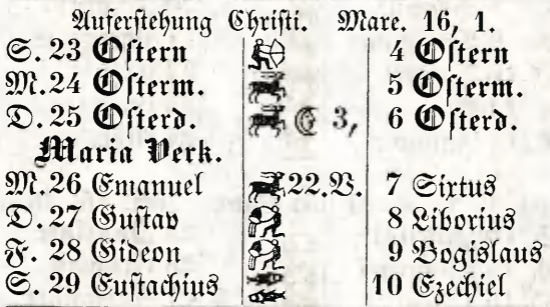 Auferstehung Christi. Marc. 16, 1.
S. 23 Ostern 4 Ostern
M. 24 Osterm. 5 Osterm.
D. 25 Osterd. 3, 6 Osterd.
Maria Verk.
M. 26 Emanuel 22. V. 7 Sixtus
D. 27 Gustav 8 Liborius
F. 28 Gideon 9 Bogislaus
S. 29 Eustachius 10 Ezechiel